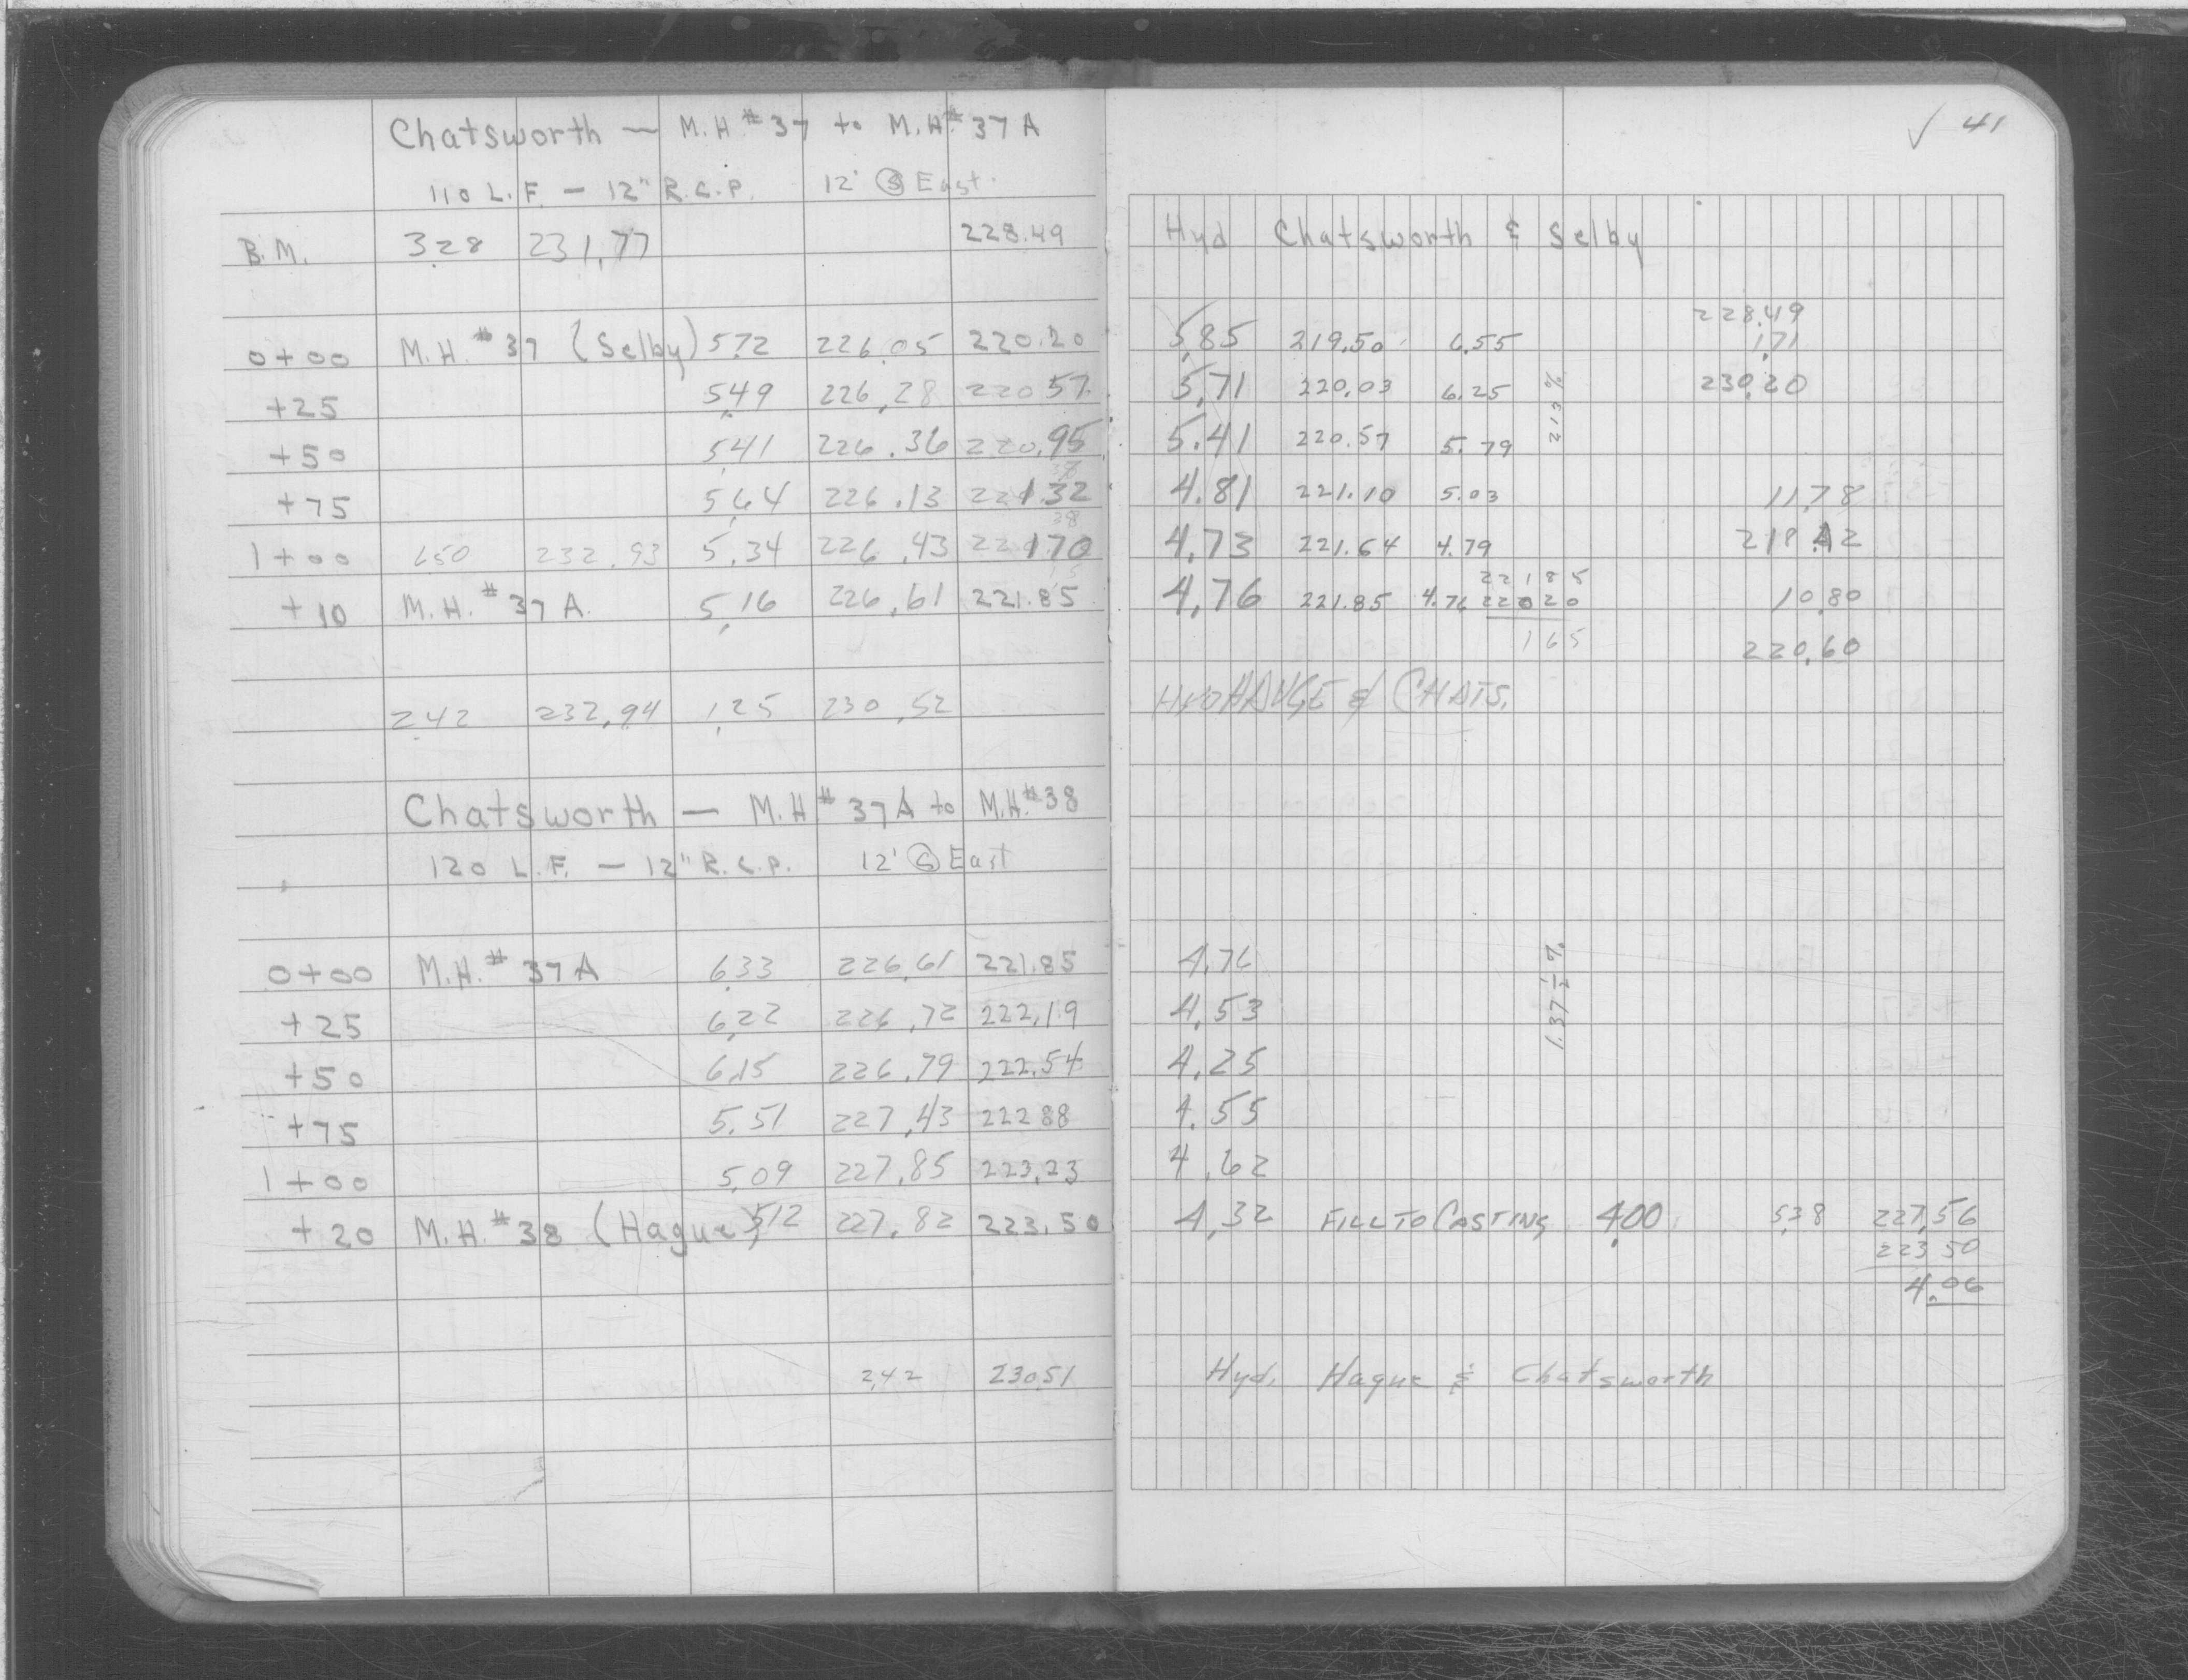 Chatsworth — M.H.#37 to M.H.#37A
110 L.F. — 12" R.C.P. 12' Ⓢ East
B.M. 3.28 231.77 228.49
0+00 M.H.#37 (Selby) 5.72 226.05 220.20
+25 5.49 226.28 220.57
+50 5.41 226.36 220.95
+75 5.64 226.13 221.32
1+00 6.50 232.93 5.34 226.43 221.70
+10 M.H.#37A. 5.16 226.61 221.85
2.42 232.94 1.25 230.52
Chatsworth — M.H#37A to M.H.#38
120 L.F. — 12" R.C.P. 12' Ⓢ East
0+00 M.H.#37A 6.33 226.61 221.85
+25 6.22 226.72 222.19
+50 6.15 226.79 222.54
+75 5.51 227.43 222.88
1+00 5.09 227.85 223.23
+20 M.H.#38 (Hague) 5.12 227.82 223.50
2.42 230.51
✓ 41
Hyd Chatsworth & Selby
228.49
5.85 219.50 6.55 1.71
5.71 220.03 6.25 230.20
2.13 %
5.41 220.57 5.79
4.81 221.10 5.03 11.78
4.73 221.64 4.79 218.42
22185
4.76 221.85 4.76 22020 10.80
165 220.60
HYD HAUGE & CHATS.
4.76
4.53
1.37 ½ %
4.25
4.55
4.62
4.32 FILL TO CASTING 4.00 5.38 227.56
223.50
4.06
Hyd. Hague & Chatsworth